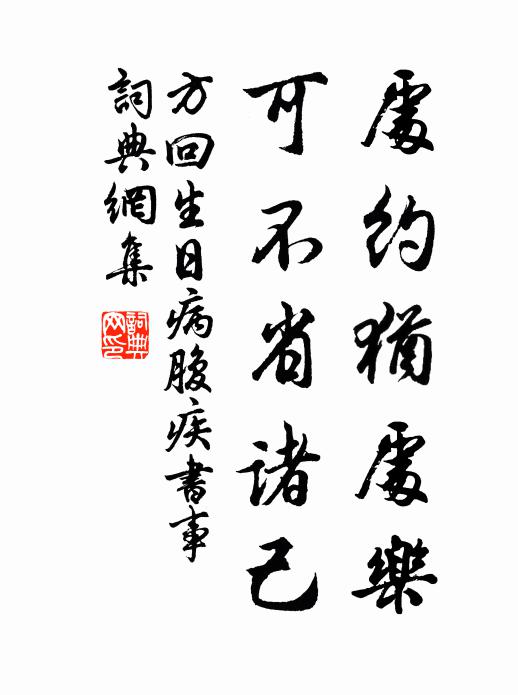 處約猶處樂
可不省諸己
方回生日病腹疾書事
詞典網集
詞典网印